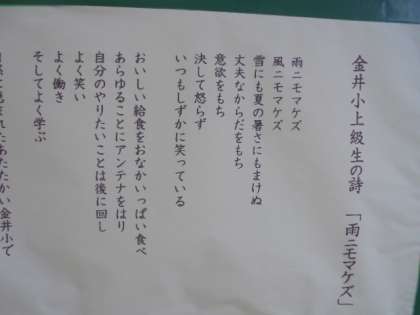 金井小上級生の詩　「雨ニモマケズ」
雨ニモマケズ
風ニモマケズ
雪にも夏の暑さにもまけぬ
丈夫なからだをもち
意欲をもち
決して怒らず
いつもしずかに笑っている
おいしい給食をおなかいっぱい食べ
あらゆることにアンテナをはり
自分のやりたいことは後に回し
よく笑い
よく働き
そしてよく学ぶ
自然に包まれたあたたかい金井小で